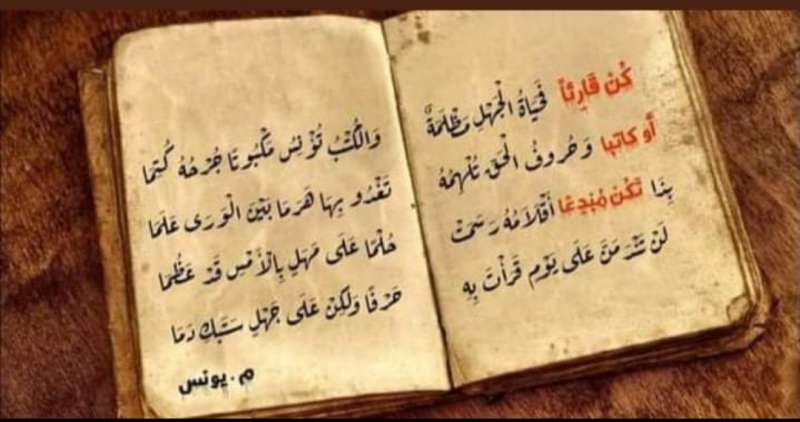 كُنْ قَارِئاً فَحَيَاةُ الْجَهْلِ مَظْلَمَةٌ
أَو كاتبا وَحُروفُ الْحَقِ تُلْهِمُهُ
بِذَا تَكُن مُبْدِعًا أَقْلَامُهُ رَسَمَتْ
لَنْ تَنْدَمَنَّ عَلَى يَوْمٍ قَرَأْتَ بِهِ
وَالْكُتْبُ تُؤْنِسُ مَكْبُوتًا جُرْحُهُ كُتِمَا
تَغْدُو بِهَا هَرَمَا بَيْنَ الْوَرَى عَلَمَا
حُلْمًا عَلَى مَهَلٍ بِالْأَمْسِ قَدْ عَظُمَا
حَرْفًا وَلَكِنْ عَلَى جَهْلٍ سَتَبْكِ دَمَا
م.يونس